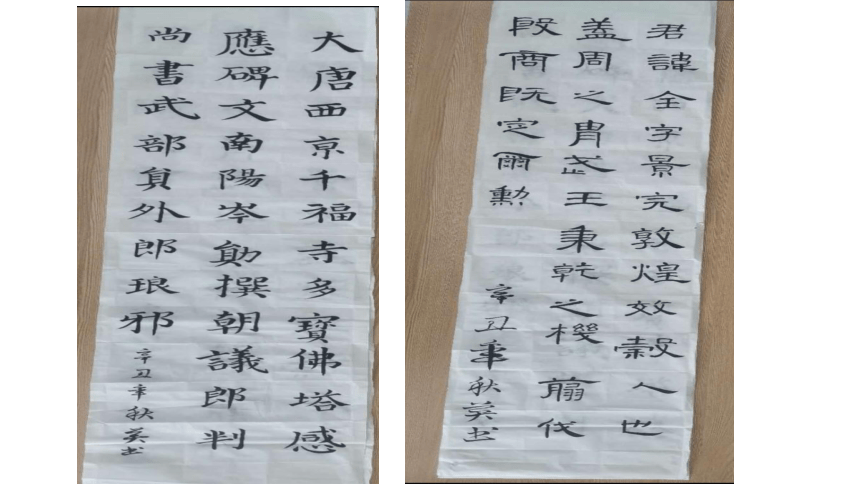 大唐西京千福寺多寶佛塔感
應碑文南陽岑勛撰朝議郎判
尚書武部員外郎琅邪
辛丑年秋英书
君諱全字景完敦煌效穀人也
蓋周之胄武王秉乾之機翦伐
殷商既定爾勳
辛丑年秋英书